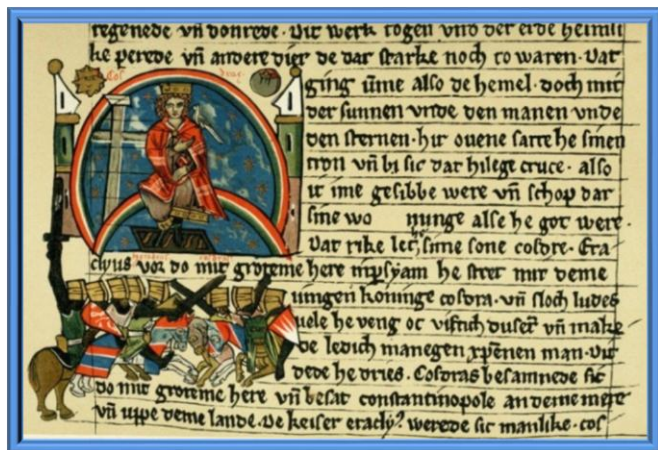 regenede vn̄ donrede. Dit werk togen vnd der erde heimli
ke perede vn̄ andere dier de dar starke noch to waren. Dat
ging vme also de hemel. doch mit
der sunnen vnde den manen vnde
den sternen. hir ovene satte he sinen
tron vn̄ bi sic dat hilege cruce. also
it ime gesibbe were vn̄ schop dar
sine wo nunge alse he got were.
Dat rike let he sime sone cosdre. Era
clius vor do mit groteme here in psyam he stret mit deme
iungen koninge cosdra. vn̄ sloch ludes
uele he veng oc viftich dusēt vn̄ make
de ledich manegen xp̄enen man. Dit
dede he dries. Cosdras besamnede sic
do mit groteme here vn̄ besat constantinopole an deme mere
vn̄ uppe deme lande. De keiser eracly? werede sic manlike. cos